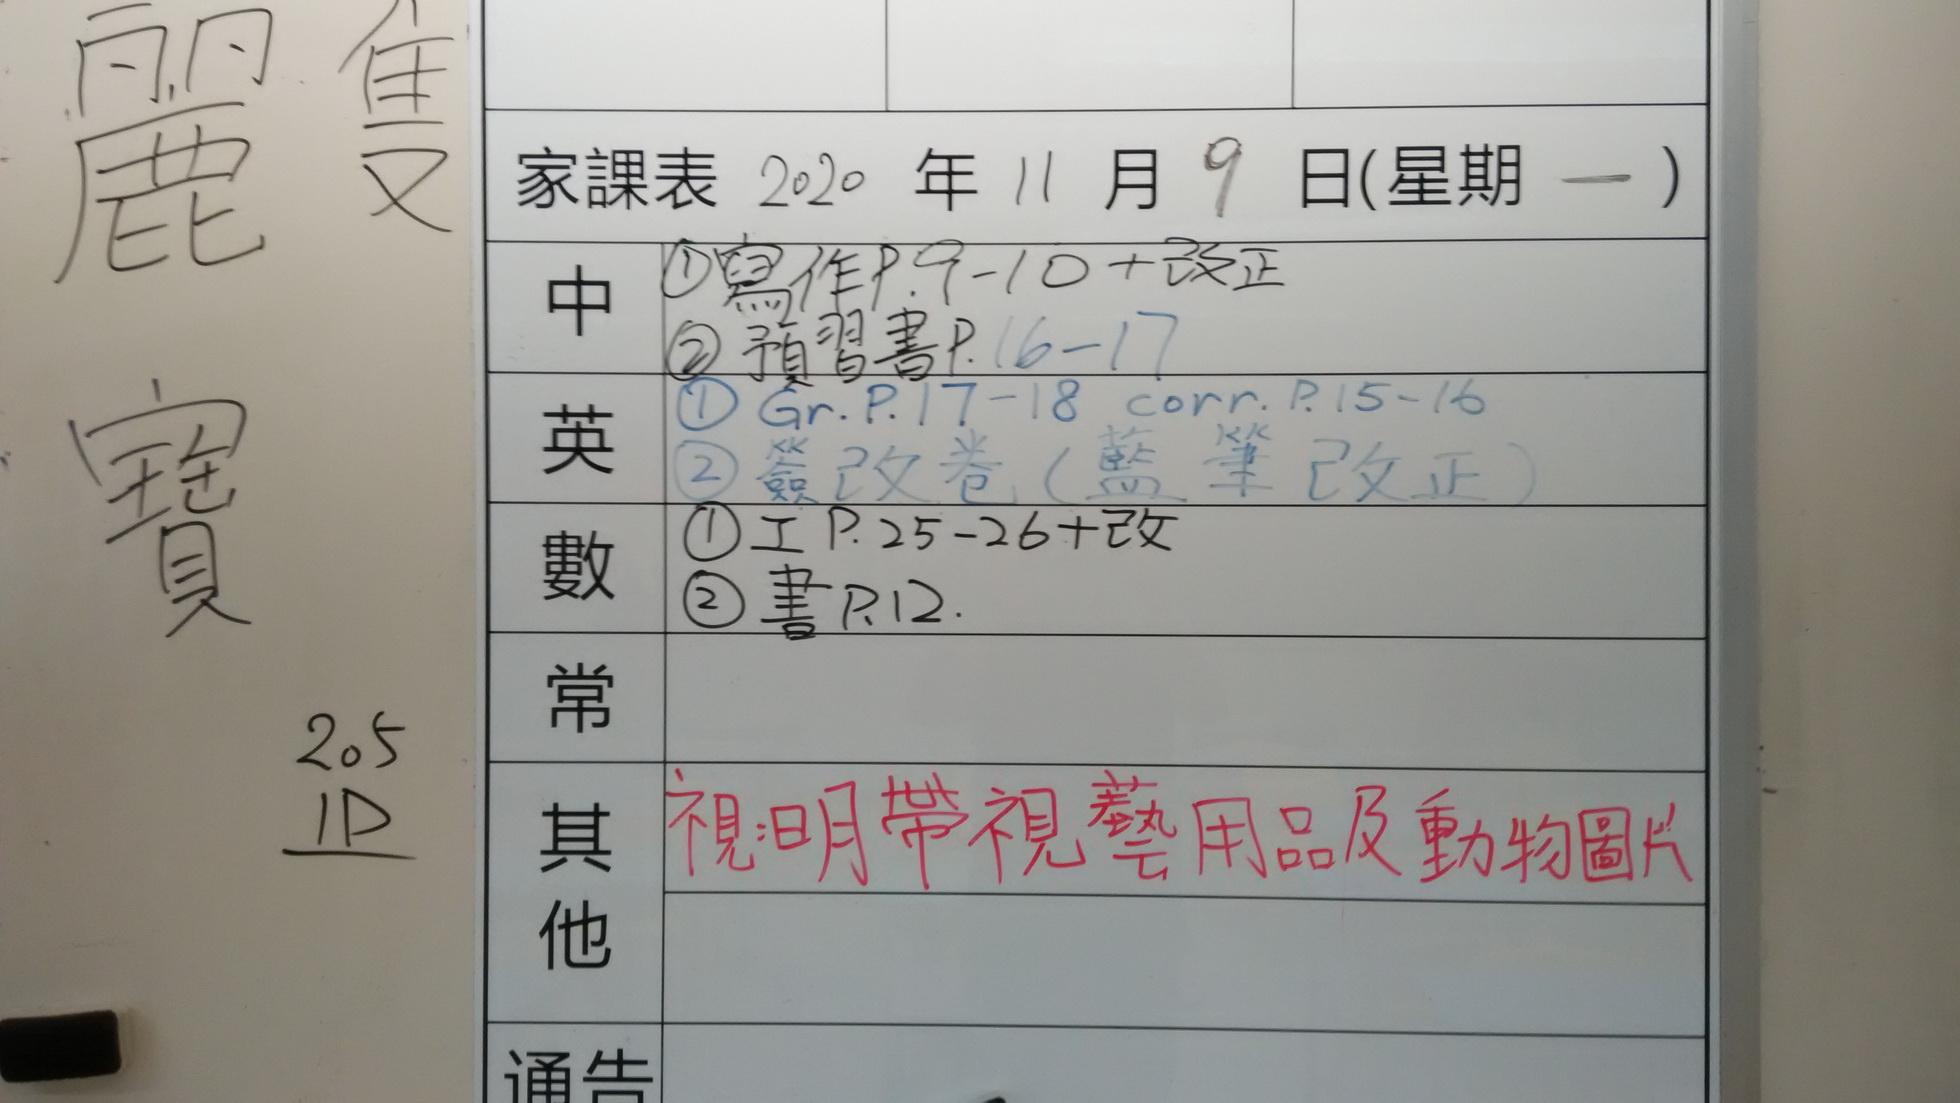 麗
隻
寶
205
1D
家課表 2020 年 11 月 9 日(星期 一 )
中
①寫作P.9-10+改正
②預習書P.16-17
英
① Gr.P.17-18 corr.P.15-16
② 簽改卷(藍筆改正)
數
①工P.25-26+改
②書P.12.
常
其他
視:明帶視藝用品及動物圖片
通告